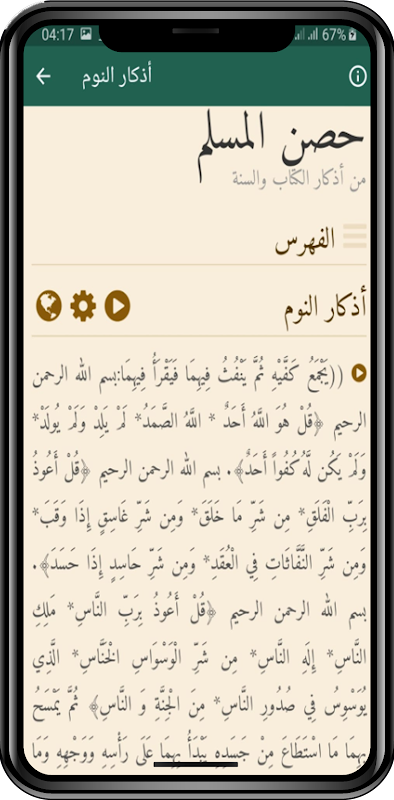 04:17
67%
أذكار النوم
حصن المسلم
من أذكار الكتاب والسنة
الفهرس
أذكار النوم
((يَجْمَعُ كَفَّيْهِ ثُمَّ يَنْفُثُ فِيهِمَا فَيَقْرَأُ فِيهِمَا:بسم الله الرحمن
الرحيم ﴿قُلْ هُوَ اللَّهُ أَحَدٌ * اللَّهُ الصَّمَدُ* لَمْ يَلِدْ وَلَمْ يُولَدْ*
وَلَمْ يَكُن لَّهُ كُفُواً أَحَدٌ﴾. بسم الله الرحمن الرحيم ﴿قُلْ أَعُوذُ
بِرَبِّ الْفَلَقِ* مِن شَرِّ مَا خَلَقَ* وَمِن شَرِّ غَاسِقٍ إِذَا وَقَبَ*
وَمِن شَرِّ النَّفَّاثَاتِ فِي الْعُقَدِ* وَمِن شَرِّ حَاسِدٍ إِذَا حَسَدَ﴾.
بسم الله الرحمن الرحيم ﴿قُلْ أَعُوذُ بِرَبِّ النَّاسِ* مَلِكِ
النَّاسِ* إِلَهِ النَّاسِ* مِن شَرِّ الْوَسْوَاسِ الْخَنَّاسِ* الَّذِي
يُوَسْوِسُ فِي صُدُورِ النَّاسِ* مِنَ الْجِنَّةِ وَ النَّاسِ﴾ ثُمَّ يَمْسَحُ
بِهِمَا مَا اسْتَطَاعَ مِنْ جَسَدِهِ يَبْدَأُ بِهِمَا عَلَى رَأْسِهِ وَوَجْهِهِ وَمَا